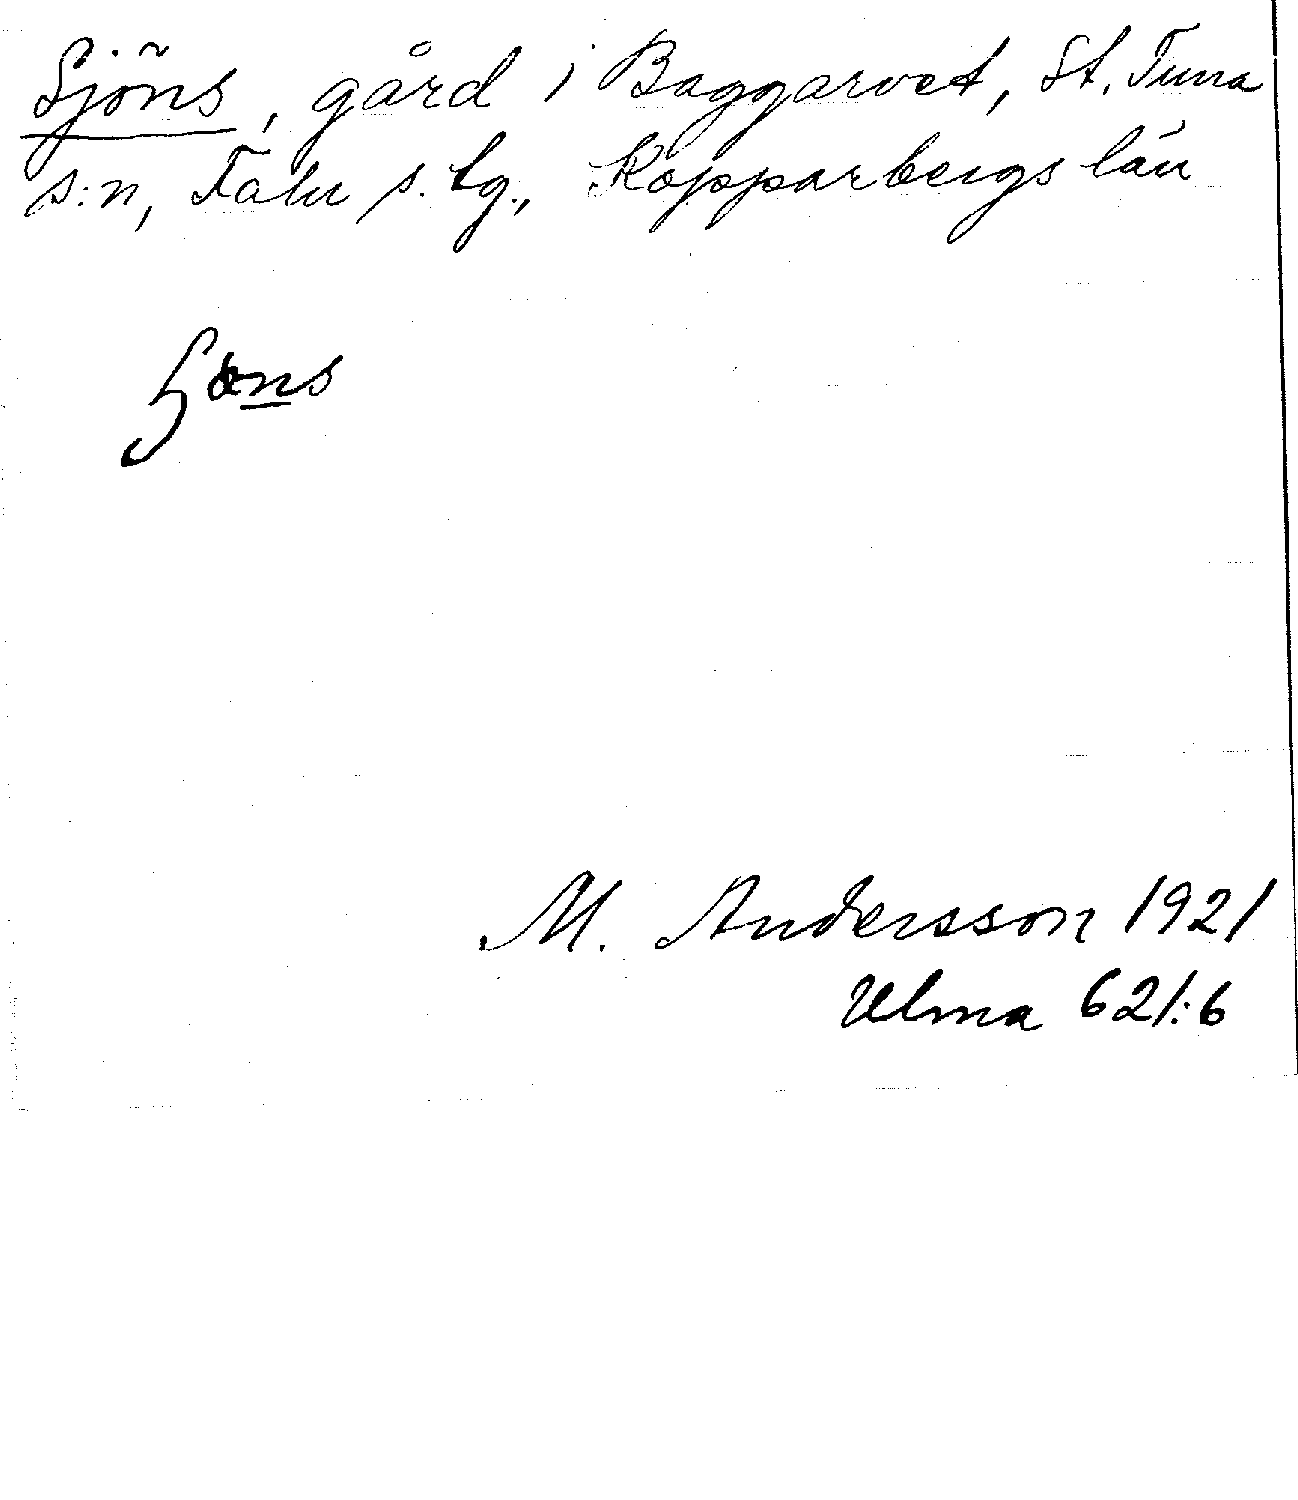 Sjöns, gård i Baggarvet, St. Tuna
s:n, Falu s. tg., Kopparbergs län
M. Andersson 1921
Ulma 621:6